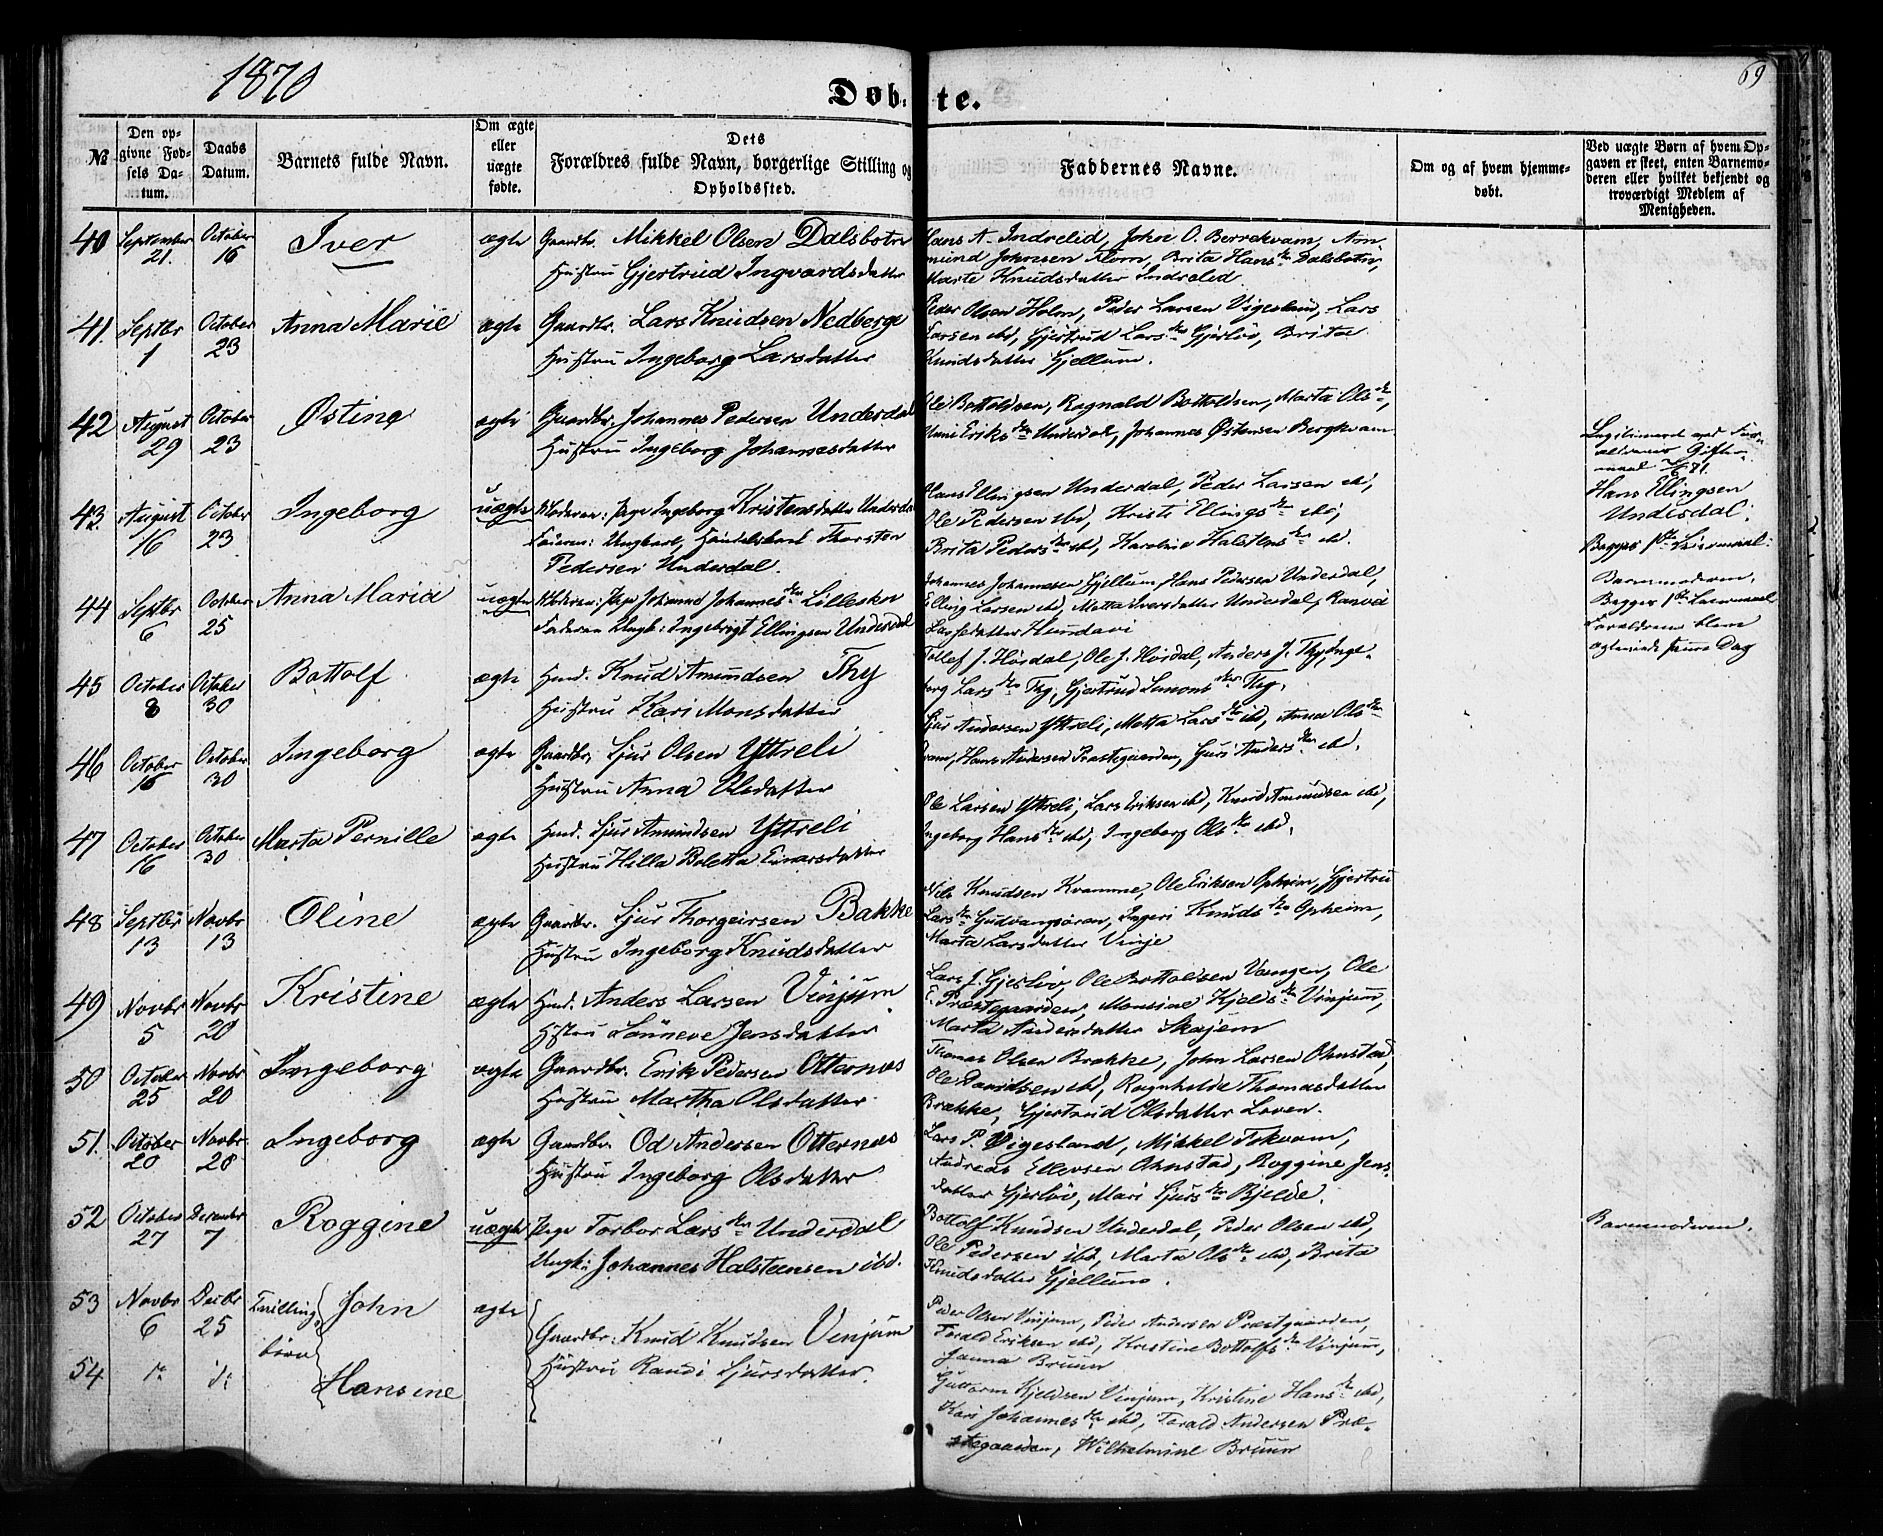 1870
Døb-
te.
69
№
Den op-
givne Fød-
sels Da-
tum.
Daabs
Datum.
Barnets fulde Navn.
Om ægte
eller
uægte
fødte.
Dets
Forældres fulde Navn, borgerlige Stilling og
Opholdssted.
Faddernes Navne.
Om og af hvem hjemme-
døbt.
Ved uægte Børn af hvem Op-
gaven er skeet, enten Barnemo-
deren eller hvilket bekjendt og
troværdigt Medlem af
Menigheden.
40 September 21. October 16 Iver ægte Gaardbr. Mikkel Olsen Dalsbotn
Hustru Gjertrud Ingvardsdatter
Hans A. Indrelid, John O. Berrekvam, Am-
mund Johnsen Flom, Brita Hansdtr Dalsbotn,
Marte Knudsdatter Indrelid.
41. Septbr 1 October 23 Anna Marie ægte Gaardbr. Lars Knudsen Nedberge
Hustru Ingeborg Larsdatter
Peder Olsen Holm, Peder Larsen Vigesland, Lars
Larsen ibd, Gjertrud Larsdtr Gjerløv, Brita
Knudsdatter Gjellum.
42 August 29 October 23 Østine ægte Gaardbr. Johannes Pedersen Underdal
Hustru Ingeborg Johannesdatter
Ole Bottolfsen, Ragnald Bottolfsen, Marta Olsdtr,
Eriksdtr Underdal, Johannes Østensen Bergkvam
43 August 16 October 23 Ingeborg uægte Moderen: Pige Ingeborg Kristensdatter Underdal
Faderen: Ungkarl, Handelskarl Thorsten
Pedersen Underdal.
Hans Ellingsen Underdal, Peder Larsen ibd,
Ole Pedersen ibd, Kristi Ellingsdtr ibd,
Brita Pedersdtr ibd, Karoline Halstensdtr ibd.
Legitimeret ved For-
ældrenes Gifter-
maal
Hans Ellingsen
Underdal.
Begges 1ste Leiermaal.
44 Septbr 6 October 25 Anna Maria uægte Moderen: Pige Johanne Johannesdtr Lilleskov
Faderen Ungk: Ingebrigt Ellingsen Underdal
Johannes Johannesen Gjellum, Hans Pedersen Underdal,
Elling Larsen ibd, Metta Iversdatter Underdal, Ranvei
Larsdatter Hundavi
Barnemoderen,
Begges 1ste Leiermaal
Forældrene bleve
ægteviede samme Dag
45 October 8 October 30 Bottolf ægte Husmd. Knud Amundsen Thy
Hustru Kari Monsdatter
Tollef J. Hovdal, Ole J. Hovdal, Anders J. Thy, Inge-
borg Larsdtr Thy, Gjertrud Simonsdtr Thy.
46 October 16 October 30 Ingeborg ægte Gaardbr. Sjur Olsen Yttreli
Hustru Anna Olsdatter
Sjur Andersen Yttreli, Metta Larsdtr ibd, Anna Olsdtr
Hans Andersen Præstegaarden, Guri Andersdtr ibd.
47 October 16 October 30 Marta Pernille ægte Husmd. Sjur Amundsen Yttreli
Hustru Hilla Boletta Einarsdatter
Ole Larsen Yttreli, Lars Eriksen ibd, Knud Amundsen ibd,
Ingeborg Hansdtr ibd, Ingeborg Olsdtr ibd.
48 Septbr 13 Novbr 13 Oline ægte Gaardbr. Sjur Thorgeirsen Bakke
Hustru Ingeborg Knudsdatter
Nils Knudsen Kramme, Ole Eriksen Opheim, Gjertru
Larsdtr Gudvangsøren, Ingeri Knudsdtr Opheim,
Marta Larsdatter Vinje
49 Novbr 5 Novbr 20 Kristine ægte Husmd. Anders Larsen Vinjum
Hustru Sønneve Jensdatter
Lars J. Gjerløv, Ole Bottolfsen Vangen, Ole
E. Præstegaarden, Monsine Kjeldsdtr Vinjum,
Marta Andersdatter Skajem
50 October 25 Novbr 20 Ingeborg ægte Gaardbr. Erik Pedersen Otternæs
Hustru Martha Olsdatter
Thomas Olsen Brække, John Larsen Ohnstad,
Ole Davidsen ibd, Ragnhilda Thomasdatter
Brække, Gjertrud Olsdatter Loven.
51. October 20 Novbr. 28 Ingeborg ægte Gaardbr. Od Andersen Otternæs
Hustru Ingeborg Olsdatter
Lars P. Vigesland, Mikkel Tokvam,
Andreas Ellersen Ohnstad, Roggine Jens-
datter Gjerløv, Mari Sjursdtr Bjelde.
52 October 27 December 7 Roggine uægte Pige Torbor Larsdtr Underdal
Ungk: Johannes Halsteensen ibd.
Bottolf Knudsen Underdal, Peder Olsen ibd,
Ole Pedersen ibd, Marta Olsdtr ibd, Brita
Knudsdatter Gjellum.
Barnemoderen.
53 Novbr 6 Decbr 25 Tvilling- John ægte Gaardbr. Knud Knudsen Vinjum
54 do do børn Hansine Hustru Randi Sjursdatter.
Peder Olsen Vinjum, Peder Andersen Præstgaarden,
Torald Eriksen ibd, Kristine Bottolfsdtr Vinjum,
Janna Bruun
Guttorm Kjeldsen Vinjum, Kristine Hansdtr ibd,
Kari Johannesdtr ibd, Torald Andersen Præ-
stegaarden, Wilhelmine Bruun